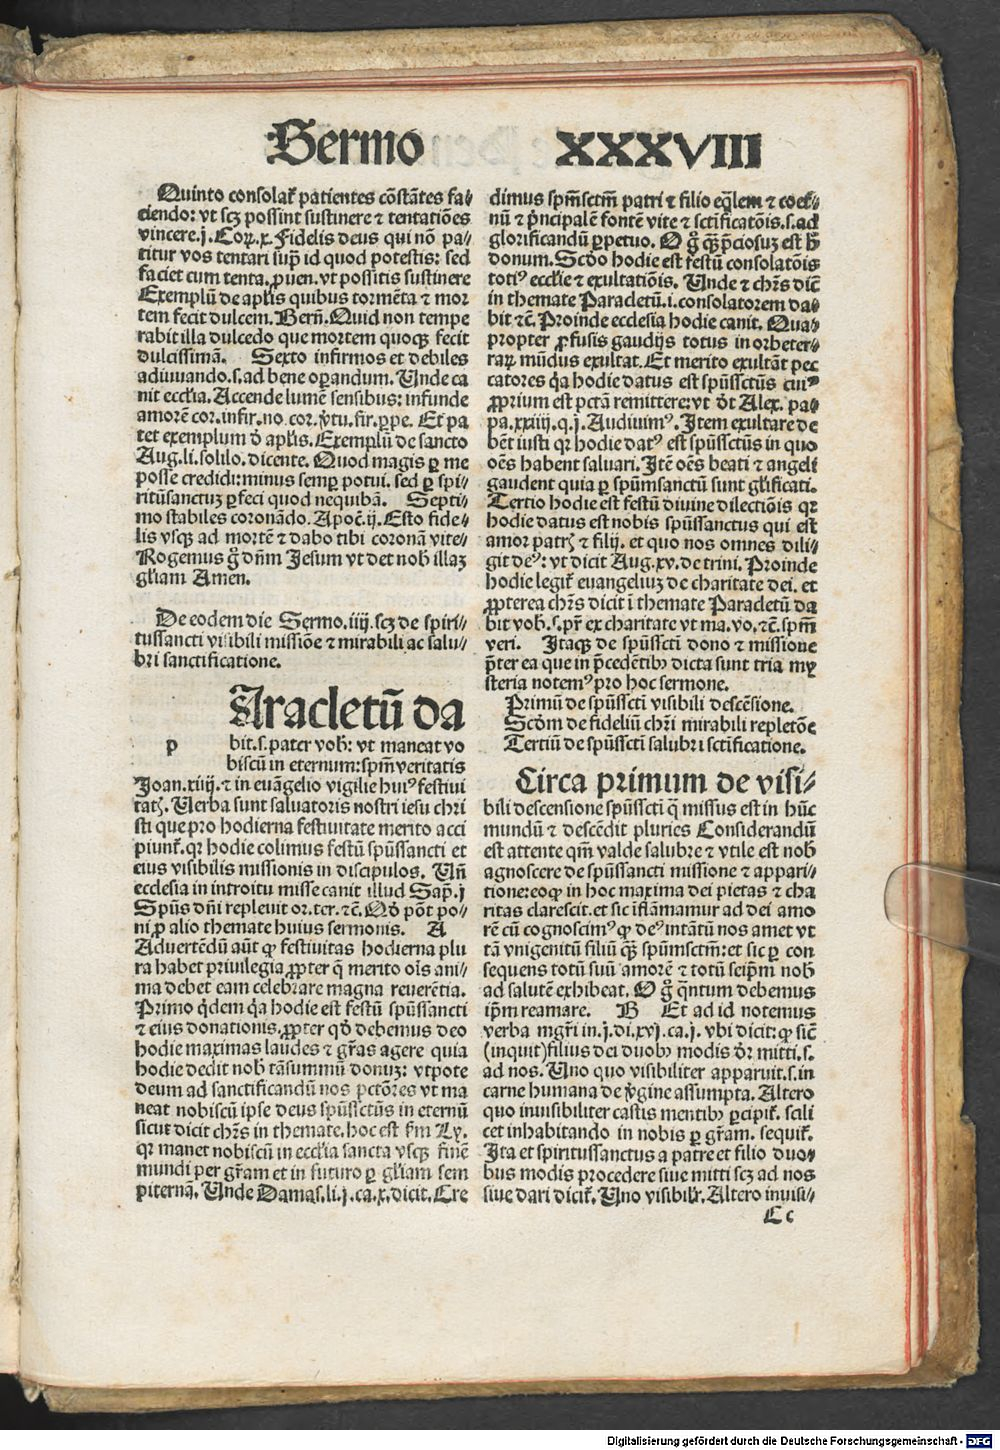 Sermo XXXVIII
Quinto consolat᷑ patientes cōstātes fa⸗
ciendo: vt scꝫ possint sustinere ⁊ tentatiōes
vincere.j. Coꝝ.x. Fidelis deus qui nō pa⸗
titur vos tentari sup̄ id quod potestis: sed
faciet cum tenta.ꝓuen.vt possitis sustinere
Exemplū de apl̄is quibus tormēta ⁊ mor
tem fecit dulcem. Berñ. Quid non tempe
rabit illa dulcedo que mortem quoqꝫ fecit
dulcissimā. Sexto infirmos et debiles
adiuuando.s.ad bene oꝑandum. Unde ca
nit eccl̄ia. Accende lumē sensibus: infunde
amorē cor.infir.no.cor.v̓tu.fir.ꝑpe. Et pa
tet exemplum d̓ apl̄is. Exemplū de sancto
Aug.li.solilo.dicente. Quod magis ꝑ me
posse credidi: minus semꝑ potui. sed ꝑ spi⸗
ritūsanctuꝫ ꝑfeci quod nequibā. Septi⸗
mo stabiles coronādo. Apoc̄.ij. Esto fide⸗
lis vsqꝫ ad mortē ⁊ dabo tibi coronā vite⸗
Rogemus g̊ dn̄m Jesum vt det nob̄ illaꝫ
gl̄iam Amen.
De eodem die Sermo.iiij.scꝫ de spiri⸗
tussancti visibili missiōe ⁊ mirabili ac salu⸗
bri sanctificatione.
Aracletū da
p bit.s.pater vob̄: vt maneat vo
biscū in eternum: spm̄ veritatis
Joan.xiiij.⁊ in euāgelio vigilie huiꝰ festiui
tatꝭ. Uerba sunt saluatoris nostri iesu chri
sti que pro hodierna festiuitate merito acci
piunt᷑.qr hodie colimus festū spūssancti et
eius visibilis missionis in discipulos. Un̄
ecclesia in introitu misse canit illud Sap̄.j
Spūs dn̄i repleuit or.ter.⁊c̄. Qd̓ pōt po⸗
ni ꝓ alio themate huius sermonis. A
Aduertēdū aūt ꝙ festiuitas hodierna plu
ra habet priuilegia ꝓpter q̄ merito oīs ani⸗
ma debet eam celebrare magna reuerētia.
Primo q̇dem q̇a hodie est festū spūssancti
⁊ eius donationis.ꝓpter qd̓ debemus deo
hodie maximas laudes ⁊ gr̄as agere quia
hodie dedit nob̄ tāsummū donuꝫ: vtpote
deum ad sanctificandū nos pctōres vt ma
neat nobiscū ipse deus spūssctūs in eternū
sicut dicit chr̄s in themate.hoc est fm Ly.
qr manet nobiscū in eccl̄ia sancta vsqꝫ finē
mundi per gr̄am et in futuro ꝑ gl̄iam sem
piternā. Unde Damas.li.j.ca.x.dicit. Cre
dimus spm̄sctm̄ patri ⁊ filio eq̄lem ⁊ coet⸗
nū ⁊ p̓ncipalē fontē vite ⁊ sctificatōis.s.ad
glorificandū ꝑpetuo. O g̊ qꝫ p̄ciosuꝫ est h̄
donum. Scd̓o hodie est festū consolatōis
totiꝰ eccl̄ie ⁊ exultatiōis. Unde ⁊ chr̄s dic̄
in themate Paracletū.i.consolatorem da⸗
bit ⁊c̄. Proinde ecclesia hodie canit. Qua⸗
propter ꝓfusis gaudijs totus in orbe ter⸗
raꝝ mūdus exultat. Et merito exultāt pec
catores q̇a hodie datus est spūssctūs cuiꝰ
ꝓprium est pctā remittere: vt d̓t Alex. pa⸗
pa.xxiiij.q.j. Audiuimꝰ. Item exultare de
bēt iusti qr hodie datꝰ est spūssctūs in quo
oēs habent saluari. Itē oēs beati ⁊ angeli
gaudent quia ꝑ spūmsanctū sunt gl̄ificati.
Tertio hodie est festū diuine dilectiōis qr
hodie datus est nobis spūssanctus qui est
amor patrꝭ ⁊ filij. et quo nos omnes dili⸗
git deꝰ: vt dicit Aug.xv.de trini. Proinde
hodie legit᷑ euangeliuꝫ de charitate dei. et
ꝓpterea chr̄s dicit ī themate Paracletū da
bit vob̄.s.pr̄ ex charitate vt ma.vo.⁊c̄.spm̄
veri. Itaqꝫ de spūsscti dono ⁊ missione
p̄ter ea que in p̄cedētibꝰ dicta sunt tria my
steria notemꝰ pro hoc sermone.
Primū de spūsscti visibili descēsione.
Scd̓m de fideliū chr̄i mirabili repletōe
Tertiū de spūsscti salubri sctificatione.
Circa primum de visi⸗
bili descensione spūsscti q̄ missus est in hūc
mundū ⁊ descēdit pluries Considerandū
est attente qm̄ valde salubre ⁊ vtile est nob̄
agnoscere de spūssancti missione ⁊ appari⸗
tione: eoꝙ in hoc maxima dei pietas ⁊ cha
ritas clarescit.et sic īflāmamur ad dei amo
rē cū cognoscimꝰ ꝙ deꝰ intātū nos amet vt
tā vnigenitū filiū qꝫ spūmsctm̄: et sic ꝑ con
sequens totū suū amorē ⁊ totū seip̄m nob̄
ad salutē exhibeat. O g̊ q̄ntum debemus
ip̄m reamare. B Et ad id notemus
verba mgr̄i in.j.di.xvj.ca.j. vbi dicit: ꝙ sic̄
(inquit)filius dei duobꝰ modis d̓r mitti.s.
ad nos. Uno quo visibiliter apparuit.s.in
carne humana de v̓gine assumpta. Altero
quo inuisibiliter castis mentibꝰ ꝑcipit᷑. scili
cet inhabitando in nobis ꝑ gr̄am. sequit᷑.
Ita et spiritussanctus a patre et filio duo⸗
bus modis procedere siue mitti scꝫ ad nos
siue dari dicit᷑. Uno visibilr̄. Altero inuisi⸗
Cc
Digitalisierung gefördert durch die Deutsche Forschungsgemeinschaft - DFG